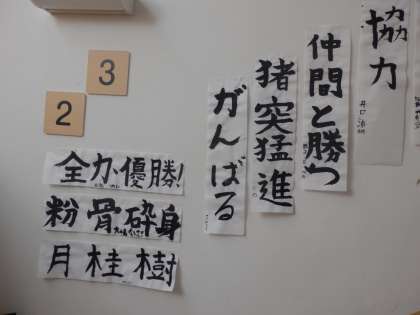 3
2
協力
仲間と勝ち
猪突猛進
がんばる
全力、優勝!
粉骨砕身
月桂樹